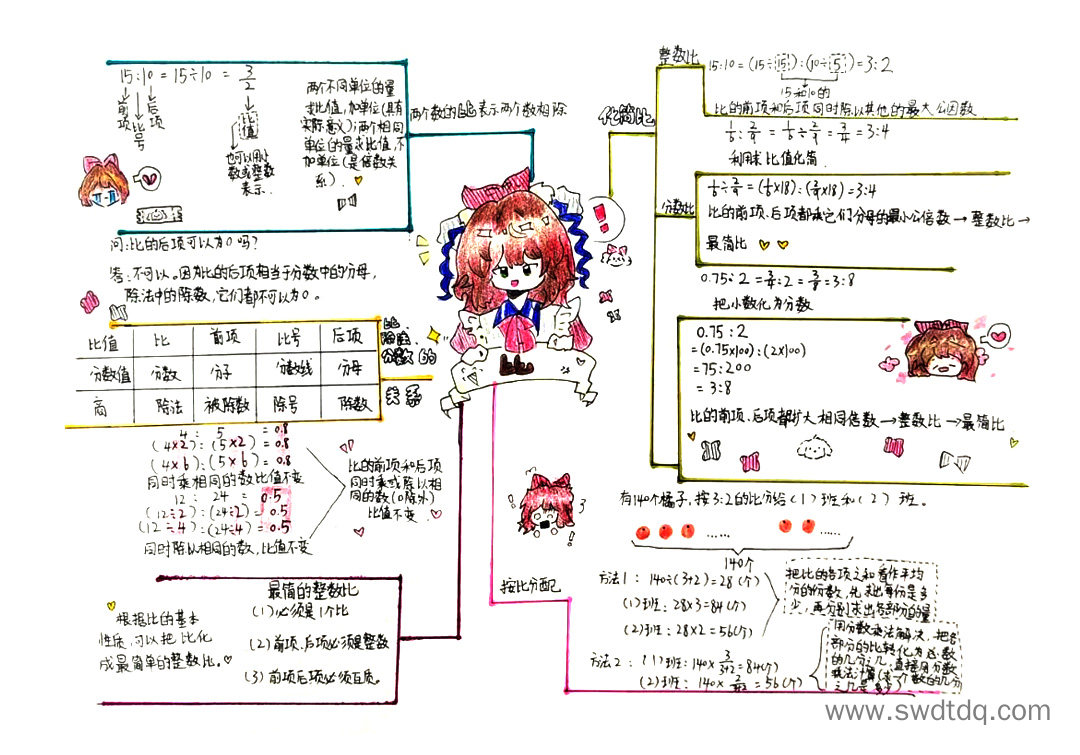 15:10 = 15÷10 = 3/2
前项
比号
后项
比值
也可以用小
数或整数
表示.
两个不同单位的量
求比值,加单位(具有
实际意义);两个相同
单位的量求比值,不
加单位(是倍数关
系).
两个数的比表示两个数相除
问:比的后项可以为0吗?
答:不可以。因为比的后项相当于分数中的分母,
除法中的除数,它们都不可以为0。
比值 比 前项 比号 后项
分数值 分数 分子 分数线 分母
商 除法 被除数 除号 除数
比、
除法、
分数的
关系
4 : 5 = 0.8
(4×2):(5×2) = 0.8
(4×6):(5×6) = 0.8
同时乘相同的数比值不变
12 : 24 = 0.5
(12÷2):(24÷2) = 0.5
(12÷4):(24÷4) = 0.5
同时除以相同的数,比值不变
比的前项和后项
同时乘或除以相
同的数(0除外)
比值不变.
根据比的基本
性质,可以把比化
成最简单的整数比。
最简的整数比
(1)必须是1个比
(2)前项、后项必须是整数
(3)前项后项必须互质。
化简比
整数比
15:10 = (15÷5):(10÷5) = 3:2
15和10的
比的前项和后项同时除以其他的最大公因数
利用求比值化简.
分数比
比的前项、后项都乘它们分母的最小公倍数→整数比→
最简比
0.75:2 = 3/4:2 = 3/8 = 3:8
把小数化为分数
0.75 : 2
= (0.75×100):(2×100)
= 75:200
= 3:8
比的前项、后项都扩大相同倍数→整数比→最简比
按比分配
有140个橘子,按3:2的比分给(1)班和(2)班。
......
......
140个
方法1: 140÷(3+2)=28(个)
(1)班: 28×3=84(个)
(2)班: 28×2=56(个)
把比的各项之和看作平均
分的份数,先求出每份是多
少,再分别求出各部分的量
方法2: (1)班: 140×3/3+2=84(个)
(2)班: 140×2/3+2=56(个)
用分数乘法解决,把各
部分的比转化为总数
的几分之几,直接用分数
乘法计算(求一个数的几分
之几是多少)
www.swdtdq.com